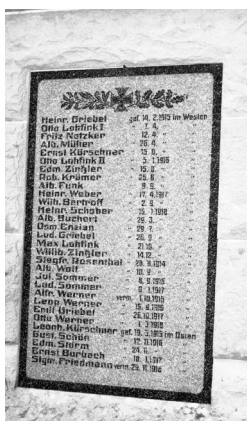 Heinr. Griebel gef. 14. 2. 1915 im Westen
Otto Lohfink I " 7. 4. "
Fritz Notzker " 12. 4. "
Alb. Müller " 26. 4. "
Ernst Kürschner " 15. 6. "
Otto Lohfink II " 5. 1. 1916 "
Edm. Zinßler " 15. 6. "
Rob. Krämer " 25. 8. "
Alb. Funk " 9. 9. "
Heinr. Weber " 17. 4. 1917 "
Wilh. Berthoff " 2. 9. "
Heinr. Schober " 15. 1. 1918 "
Alb. Buchert " 29. 3. "
Osm. Enzian " 29. 7. "
Lud. Griebel " 26. 9. "
Max Lohfink " 21. 10. "
Willib. Zinßler " 14. 12. "
Siegfr. Rosenthal " 29. 9. 1914 "
Alb. Wolf " 10. 9. "
Jul. Sommer " 8. 9. 1915 "
Lud. Sommer " 1. 1917 "
Alfr. Werner verm. 1. 10. 1915 "
Leop. Werner " 15. 6. 1916 "
Emil Griebel " 26. 10. 1917 "
Otto Werner " 1. 3. 1918 "
Leonh. Kürschner gef. 19. 3. 1915 im Osten
Gust. Schön " 12. 11. 1916 "
Edm. Sturm " 24. "
Ernst Burbach " 18. 1. 1917 "
Sigm. Friedmann verm. 29. 11. 1914 "